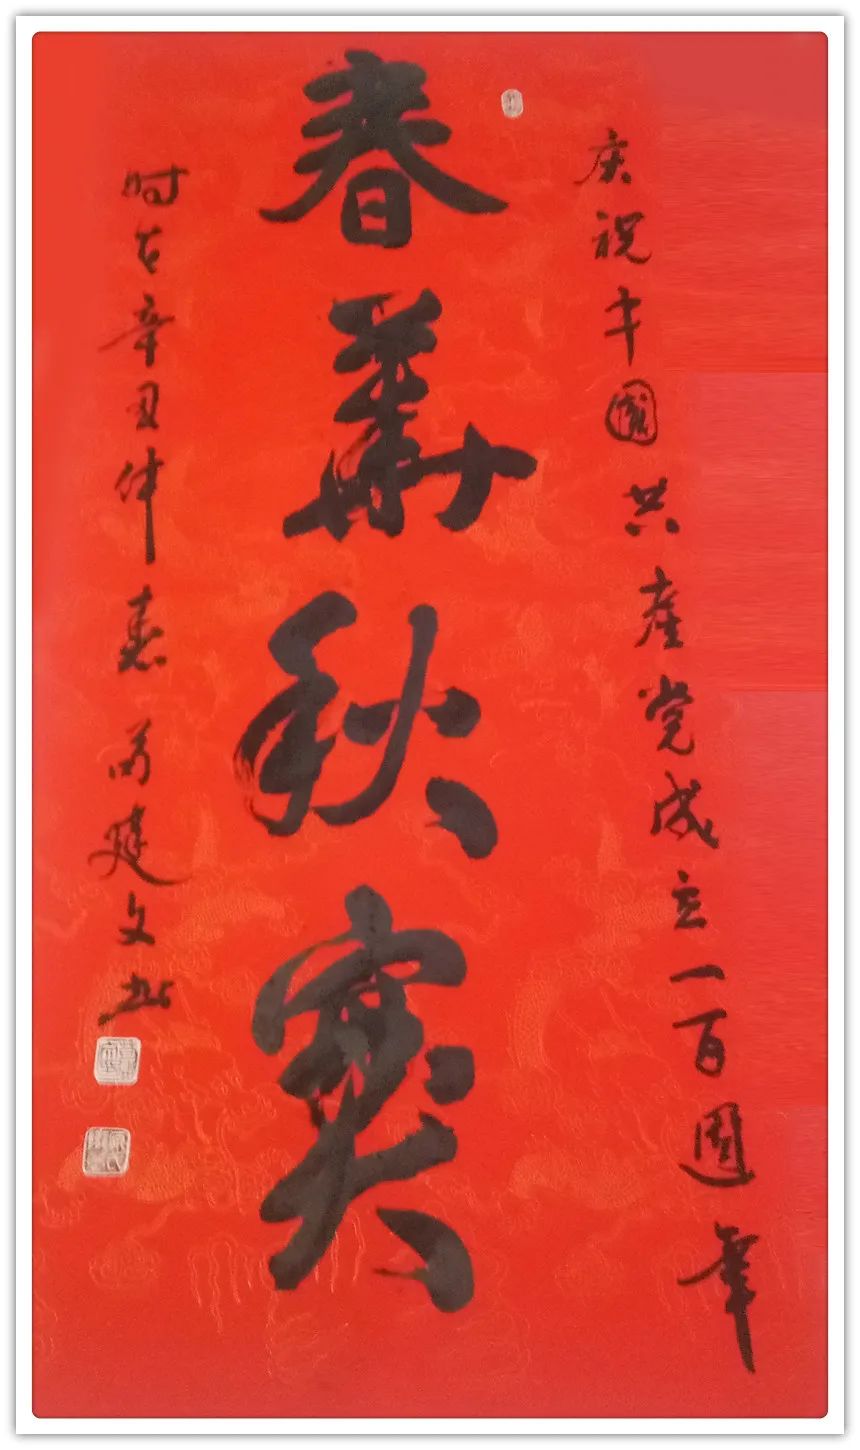 庆祝中國共產党成立一百週年
春華秋實
时在辛丑仲春 建文书